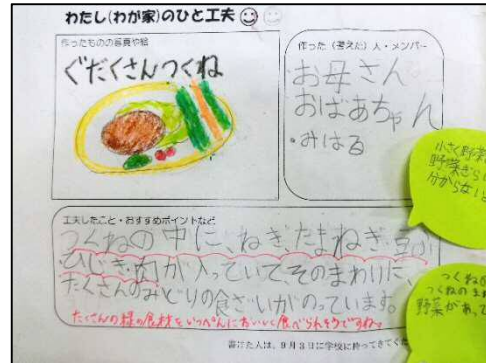 わたし(わが家)のひと工夫
作ったものの写真や絵
ぐだくさんつくね
作った(考えた)人・メンバー
お母さん
おばあちゃん
・みはる
小さく野菜
野菜ぎらい
分からないと
工夫したこと・おすすめポイントなど
つくねの中に、ねぎ、たまねぎ・豆ふ
ひじき・肉が入っていて、そのまわりに、
たくさんのみどりの食ざいがのっています。
たくさんの種の食材をいっぺんにおいしく食べられそうですね
つくねの
つくねのまわ
野菜があって
書けた人は、9月3日に学校に持ってきてく